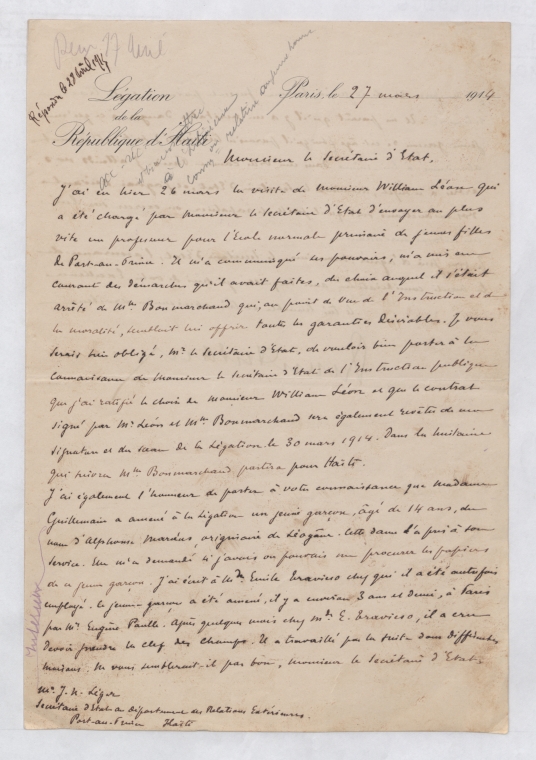 Répondu le 29 avril 1914
Légation
de la
République d'Haïti
Paris, le 27 mars 1914
Monsieur le Secrétaire d'Etat,
J'ai eu hier 26 mars la visite de Monsieur William Léon qui
a été chargé par Monsieur le Secrétaire d'Etat d'envoyer au plus
vite un professeur pour l'Ecole normale primaire de jeunes filles
de Port-au-Prince. Il m'a communiqué ses pouvoirs, m'a mis au
courant des démarches qu'il avait faites, du choix auquel il s'était
arrêté de Mlle Bonmarchand qui, au point de vue de l'Instruction et de
la moralité, semblait lui offrir toutes les garanties désirables. Je vous
serais bien obligé, Mr le Secrétaire d'Etat, de vouloir bien porter à la
connaissance de Monsieur le Secrétaire d'Etat de l'Instruction publique
que j'ai ratifié le choix de Monsieur William Léon et que le contrat
signé par Mr Léon et Mlle Bonmarchand sera également revêtu de ma
signature et du sceau de la Légation le 30 mars 1914. Dans la huitaine
qui suivra Mlle Bonmarchand partira pour Haïti.
J'ai également l'honneur de porter à votre connaissance que Madame
Guillemain a amené à la Légation un jeune garçon, âgé de 14 ans, du
nom d'Alphonse Marius originaire de Léogâne. Cette dame l'a pris à son
service. Elle m'a demandé si j'avais ou pouvais me procurer les papiers
de ce jeune garçon. J'ai écrit à Mde Emile Travieso chez qui il a été autrefois
employé. Le jeune garçon a été amené, il y a environ 3 ans et demi, à Paris
par Mr Eugène Paulle. Après quelques mois chez Mde E. Travieso, il a cru
devoir prendre la clef des champs. Il a travaillé par la suite dans différentes
maisons. Ne vous semblerait-il pas bon, Monsieur le Secrétaire d'Etat,
Mr. J. N. Léger
Secrétaire d'Etat au Département des Relations Extérieures.
Port-au-Prince Haïti